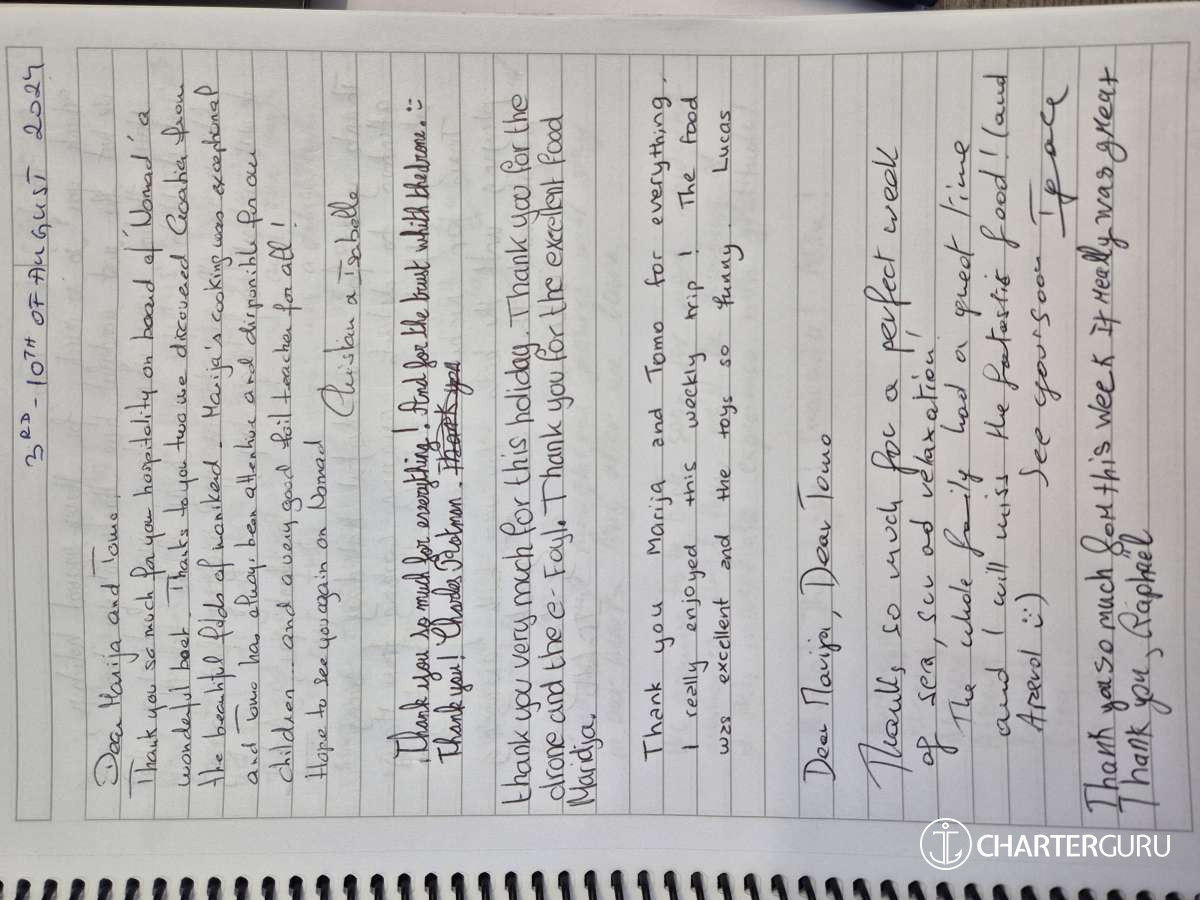 3RD - 10TH OF AUGUST 2024
Dear Marija and Tomo,
Thank you so much for your hospitality on board of "Nomad" a
wonderful boat. Thanks to you two we discovered Croatia from
the beautiful fields of monikend. Marija's cooking was exceptional
and Tomo has always been attentive and disponible for our
children and a very good foil teacher for all!
Hope to see you again on Nomad
Christian a Isabelle
Thank you so much for everything! And for the trust whith the drone. :)
Thank you! Charles Plotman. Thank you
thank you very much for this holiday. Thank you for the
drone and the e-Foyl. Thank you for the excelent food
Maridja.
Thank you Marija and Tomo for everything.
I really enjoyed this weekly trip! The food
was excellent and the toys so funny. Lucas
Dear Marija, Dear Tomo
Thanks so much for a perfect week
of sea, sun ad relaxation!
The whole family had a great time
and I will miss the fatastic food! (and
Aperol :-) See you soon
Thank you so much for this week it really was great
Thank you, Raphaël
CHARTERGURU